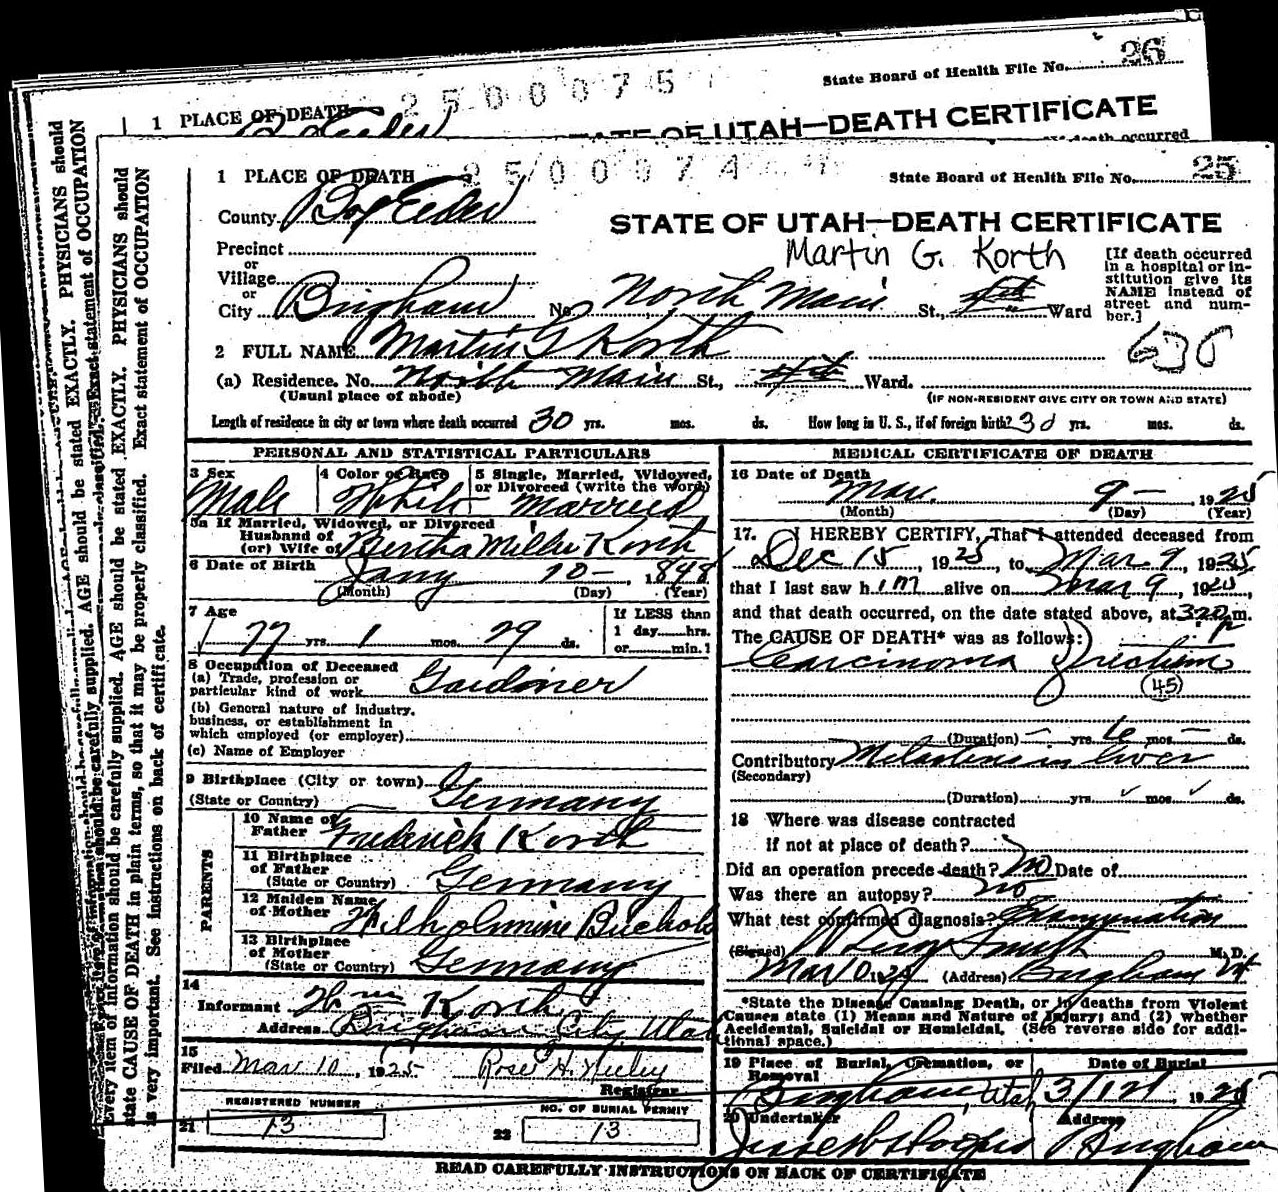 26
State Board of Health File No.
2500075
1 PLACE OF DEATH
STATE OF UTAH—DEATH CERTIFICATE
[If death occurred
25
2500074
1 PLACE OF DEATH
State Board of Health File No.
County Box Elder
STATE OF UTAH—DEATH CERTIFICATE
Martin G. Korth
Precinct
or
Village
or
City Brigham No. North Main St., 4th Ward
[If death occurred in a hospital or in-
stitution give its
NAME instead of
street and num-
ber.]
2 FULL NAME Martin G Korth
(a) Residence. No. North Main St., 4th Ward.
(Usual place of abode) (IF NON-RESIDENT GIVE CITY OR TOWN AND STATE)
Length of residence in city or town where death occurred 30 yrs. mos. ds. How long in U. S., if of foreign birth? 30 yrs. mos. ds.
PERSONAL AND STATISTICAL PARTICULARS
3 Sex Male
4 Color or Race White
5 Single, Married, Widowed,
or Divorced (write the word) Married
5a If Married, Widowed, or Divorced
Husband of
(or) Wife of Bertha Miller Korth
6 Date of Birth Jany 10– , 1848
(Month) (Day) (Year)
7 Age
77 yrs. 1 mos. 29 ds.
If LESS than
1 day......hrs.
or......min.?
8 Occupation of Deceased
(a) Trade, profession or
particular kind of work Gardiner
(b) General nature of industry,
business, or establishment in
which employed (or employer)
(c) Name of Employer
9 Birthplace (City or town)
(State or Country) Germany
PARENTS
10 Name of
Father Frederich Korth
11 Birthplace
of Father
(State or Country) Germany
12 Maiden Name
of Mother Wilholmine Bucholz
13 Birthplace
of Mother
(State or Country) Germany
14
Informant Wm Korth
Address Brigham City, Utah
15
Filed Mar 10, 1925 Rose H. Neeley
Registrar
REGISTERED NUMBER
21 13
NO. OF BURIAL PERMIT
22 13
MEDICAL CERTIFICATE OF DEATH
16 Date of Death
Mar. 9– , 1925
(Month) (Day) (Year)
17. I HEREBY CERTIFY, That I attended deceased from
Dec 15, 1925, to Mar 9, 1925
that I last saw him alive on Mar 9, 1925,
and that death occurred, on the date stated above, at 3 20 p m.
The CAUSE OF DEATH* was as follows:
Carcinoma of rectum
(45)
(Duration) – yrs. 6 mos. – ds.
Contributory Metastasis in liver
(Secondary)
(Duration) yrs. mos. ds.
18 Where was disease contracted
if not at place of death?
Did an operation precede death? No Date of
Was there an autopsy? no
What test confirmed diagnosis? Examination
(Signed) Smith M. D.
Mar 10 1925 (Address) Brigham Ut
*State the Disease Causing Death, or in deaths from Violent
Causes state (1) Means and Nature of Injury; and (2) whether
Accidental, Suicidal or Homicidal. (See reverse side for addi-
tional space.)
19 Place of Burial, Cremation, or
Removal Brigham, Utah
Date of Burial
3/12/ 1925
20 Undertaker
Address
Brigham
READ CAREFULLY INSTRUCTIONS ON BACK OF CERTIFICATE
Every item of information should be carefully supplied. AGE should be stated EXACTLY. PHYSICIANS should
state CAUSE OF DEATH in plain terms, so that it may be properly classified. Exact statement of OCCUPATION
is very important. See instructions on back of certificate.